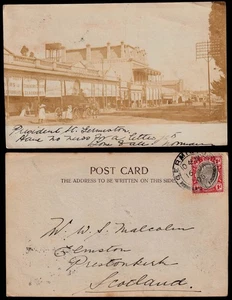 President St. Germiston
Have no news for a letter
POST CARD
THE ADDRESS TO BE WRITTEN ON THIS SIDE
W. W. S. Malcolm
Elmston
Prestonkirk
Scotland.